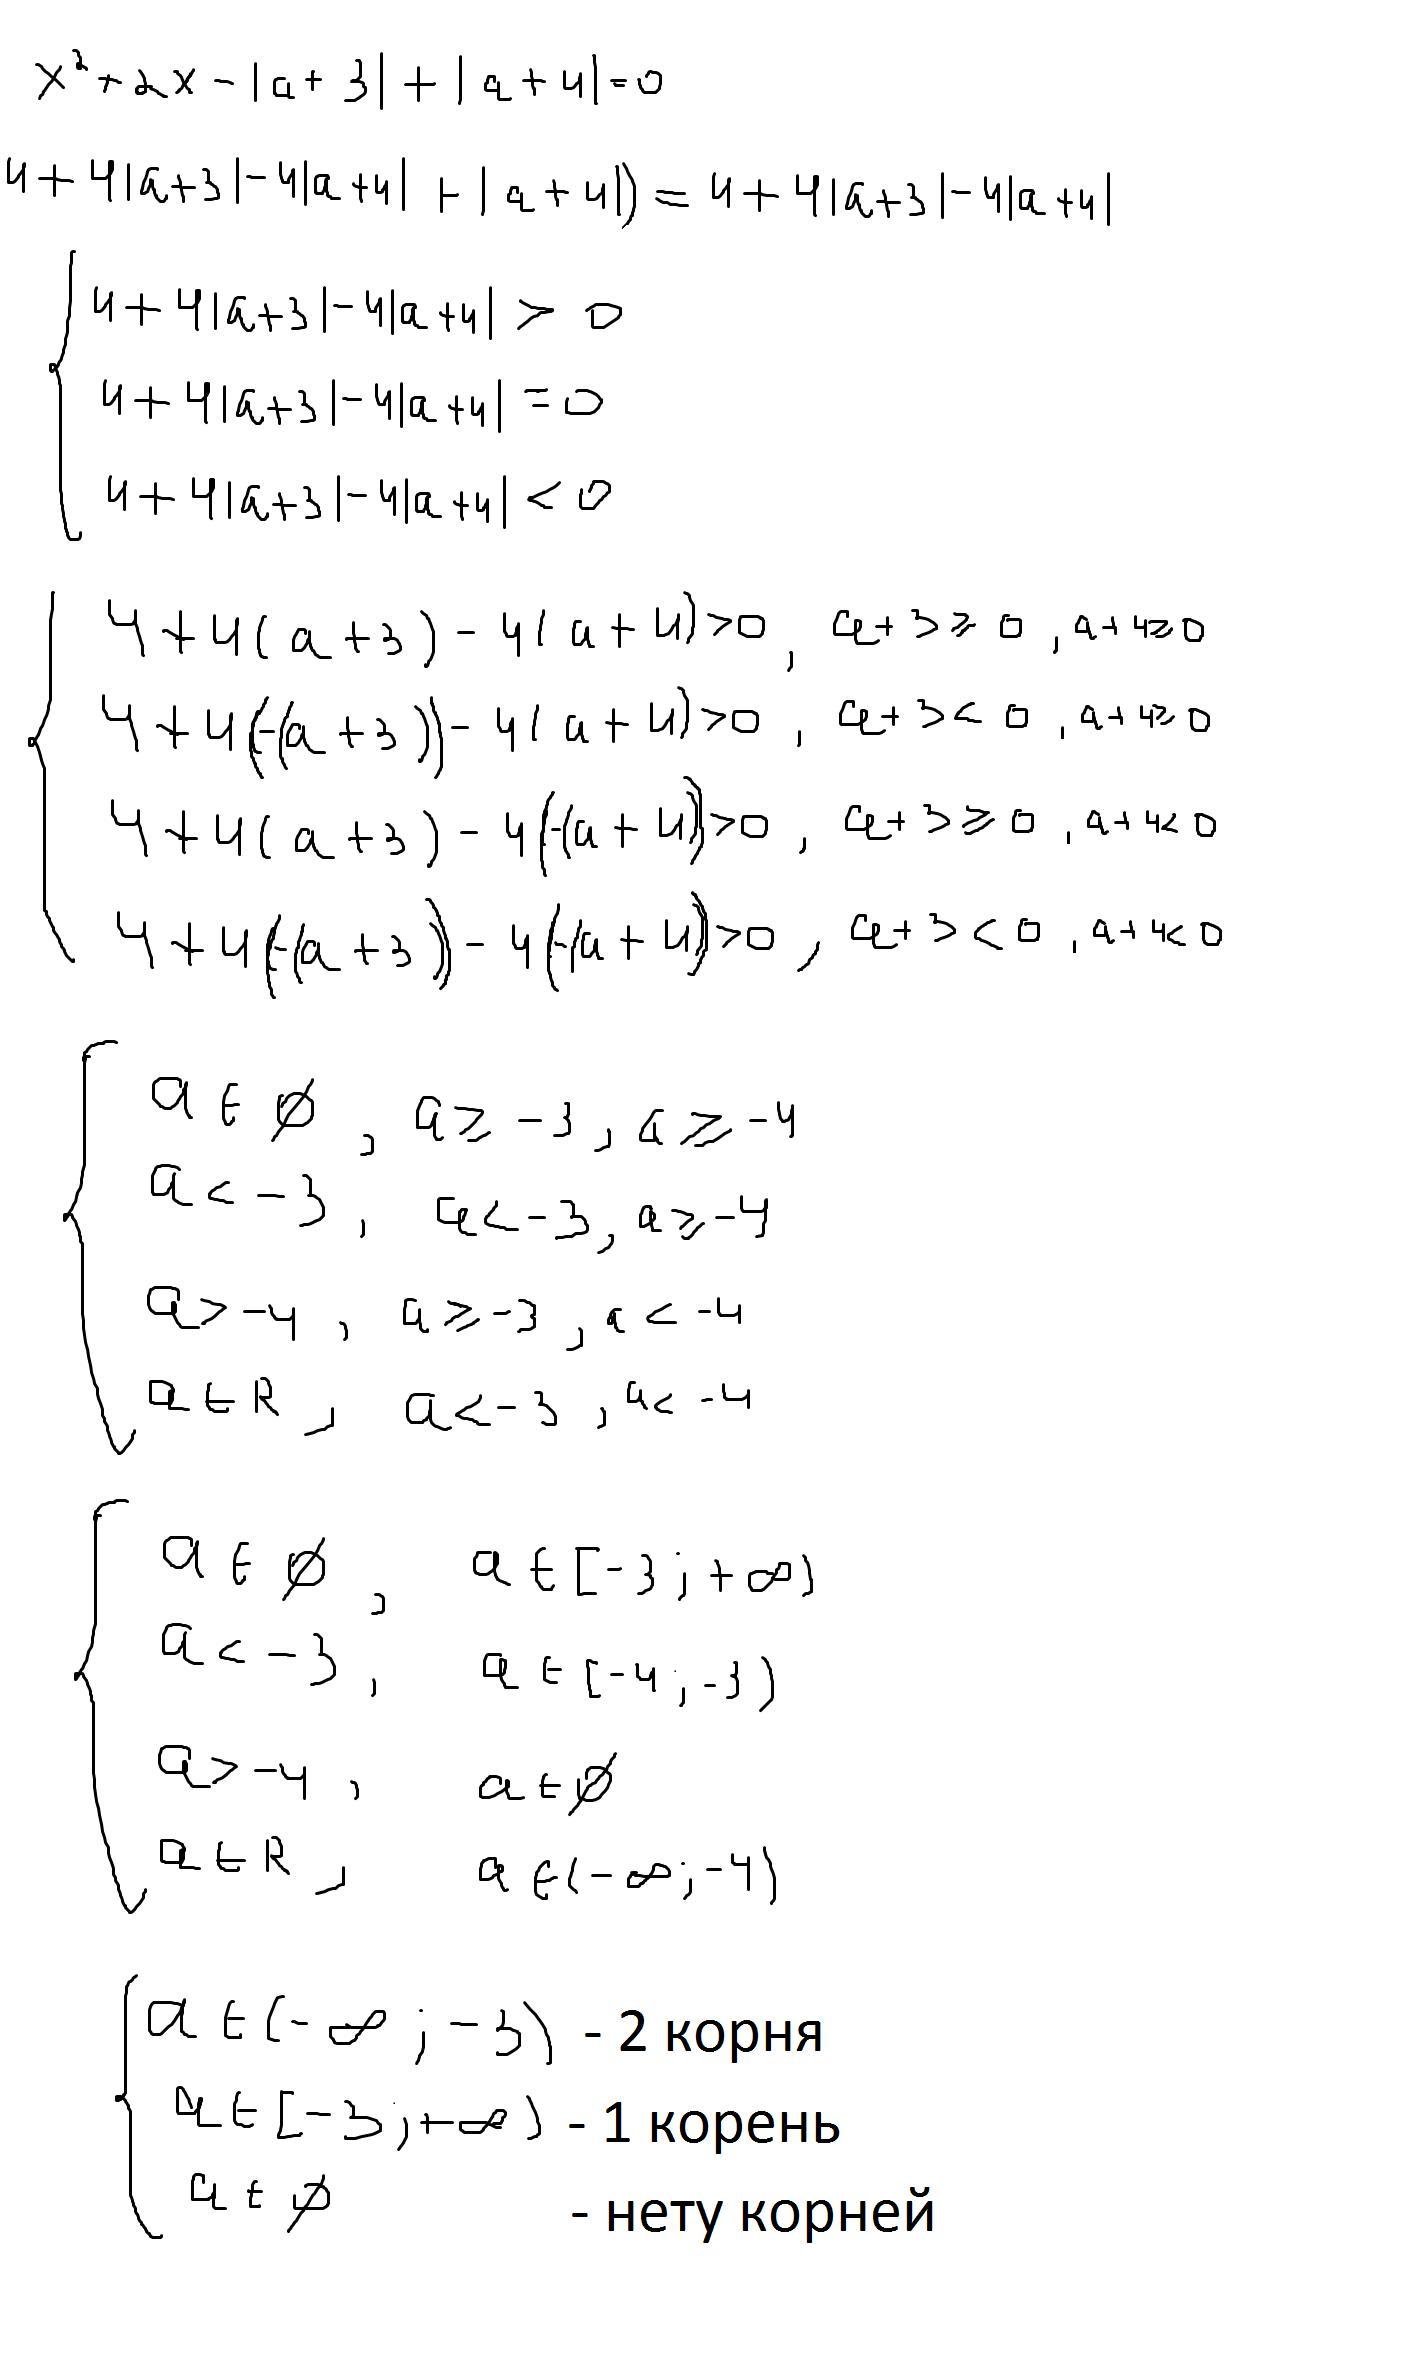 x² + 2x - |a + 3| + |a + 4| = 0
4 + 4|a+3| - 4|a+4| + |a + 4|) = 4 + 4|a+3| - 4|a+4|
4 + 4|a+3| - 4|a+4| > 0
4 + 4|a+3| - 4|a+4| = 0
4 + 4|a+3| - 4|a+4| < 0
4 + 4(a+3) - 4(a+4) > 0, a+3 ≥ 0, a+4 ≥ 0
4 + 4(-(a+3)) - 4(a+4) > 0, a+3 < 0, a+4 ≥ 0
4 + 4(a+3) - 4(-(a+4)) > 0, a+3 ≥ 0, a+4 < 0
4 + 4(-(a+3)) - 4(-(a+4)) > 0, a+3 < 0, a+4 < 0
a ∈ ∅, a ≥ -3, a ≥ -4
a < -3, a < -3, a ≥ -4
a > -4, a ≥ -3, a < -4
a ∈ R, a < -3, a < -4
a ∈ ∅, a ∈ [-3; +∞)
a < -3, a ∈ [-4; -3)
a > -4, a ∈ ∅
a ∈ R, a ∈ (-∞; -4)
a ∈ (-∞; -3) - 2 корня
a ∈ [-3; +∞) - 1 корень
a ∈ ∅ - нету корней